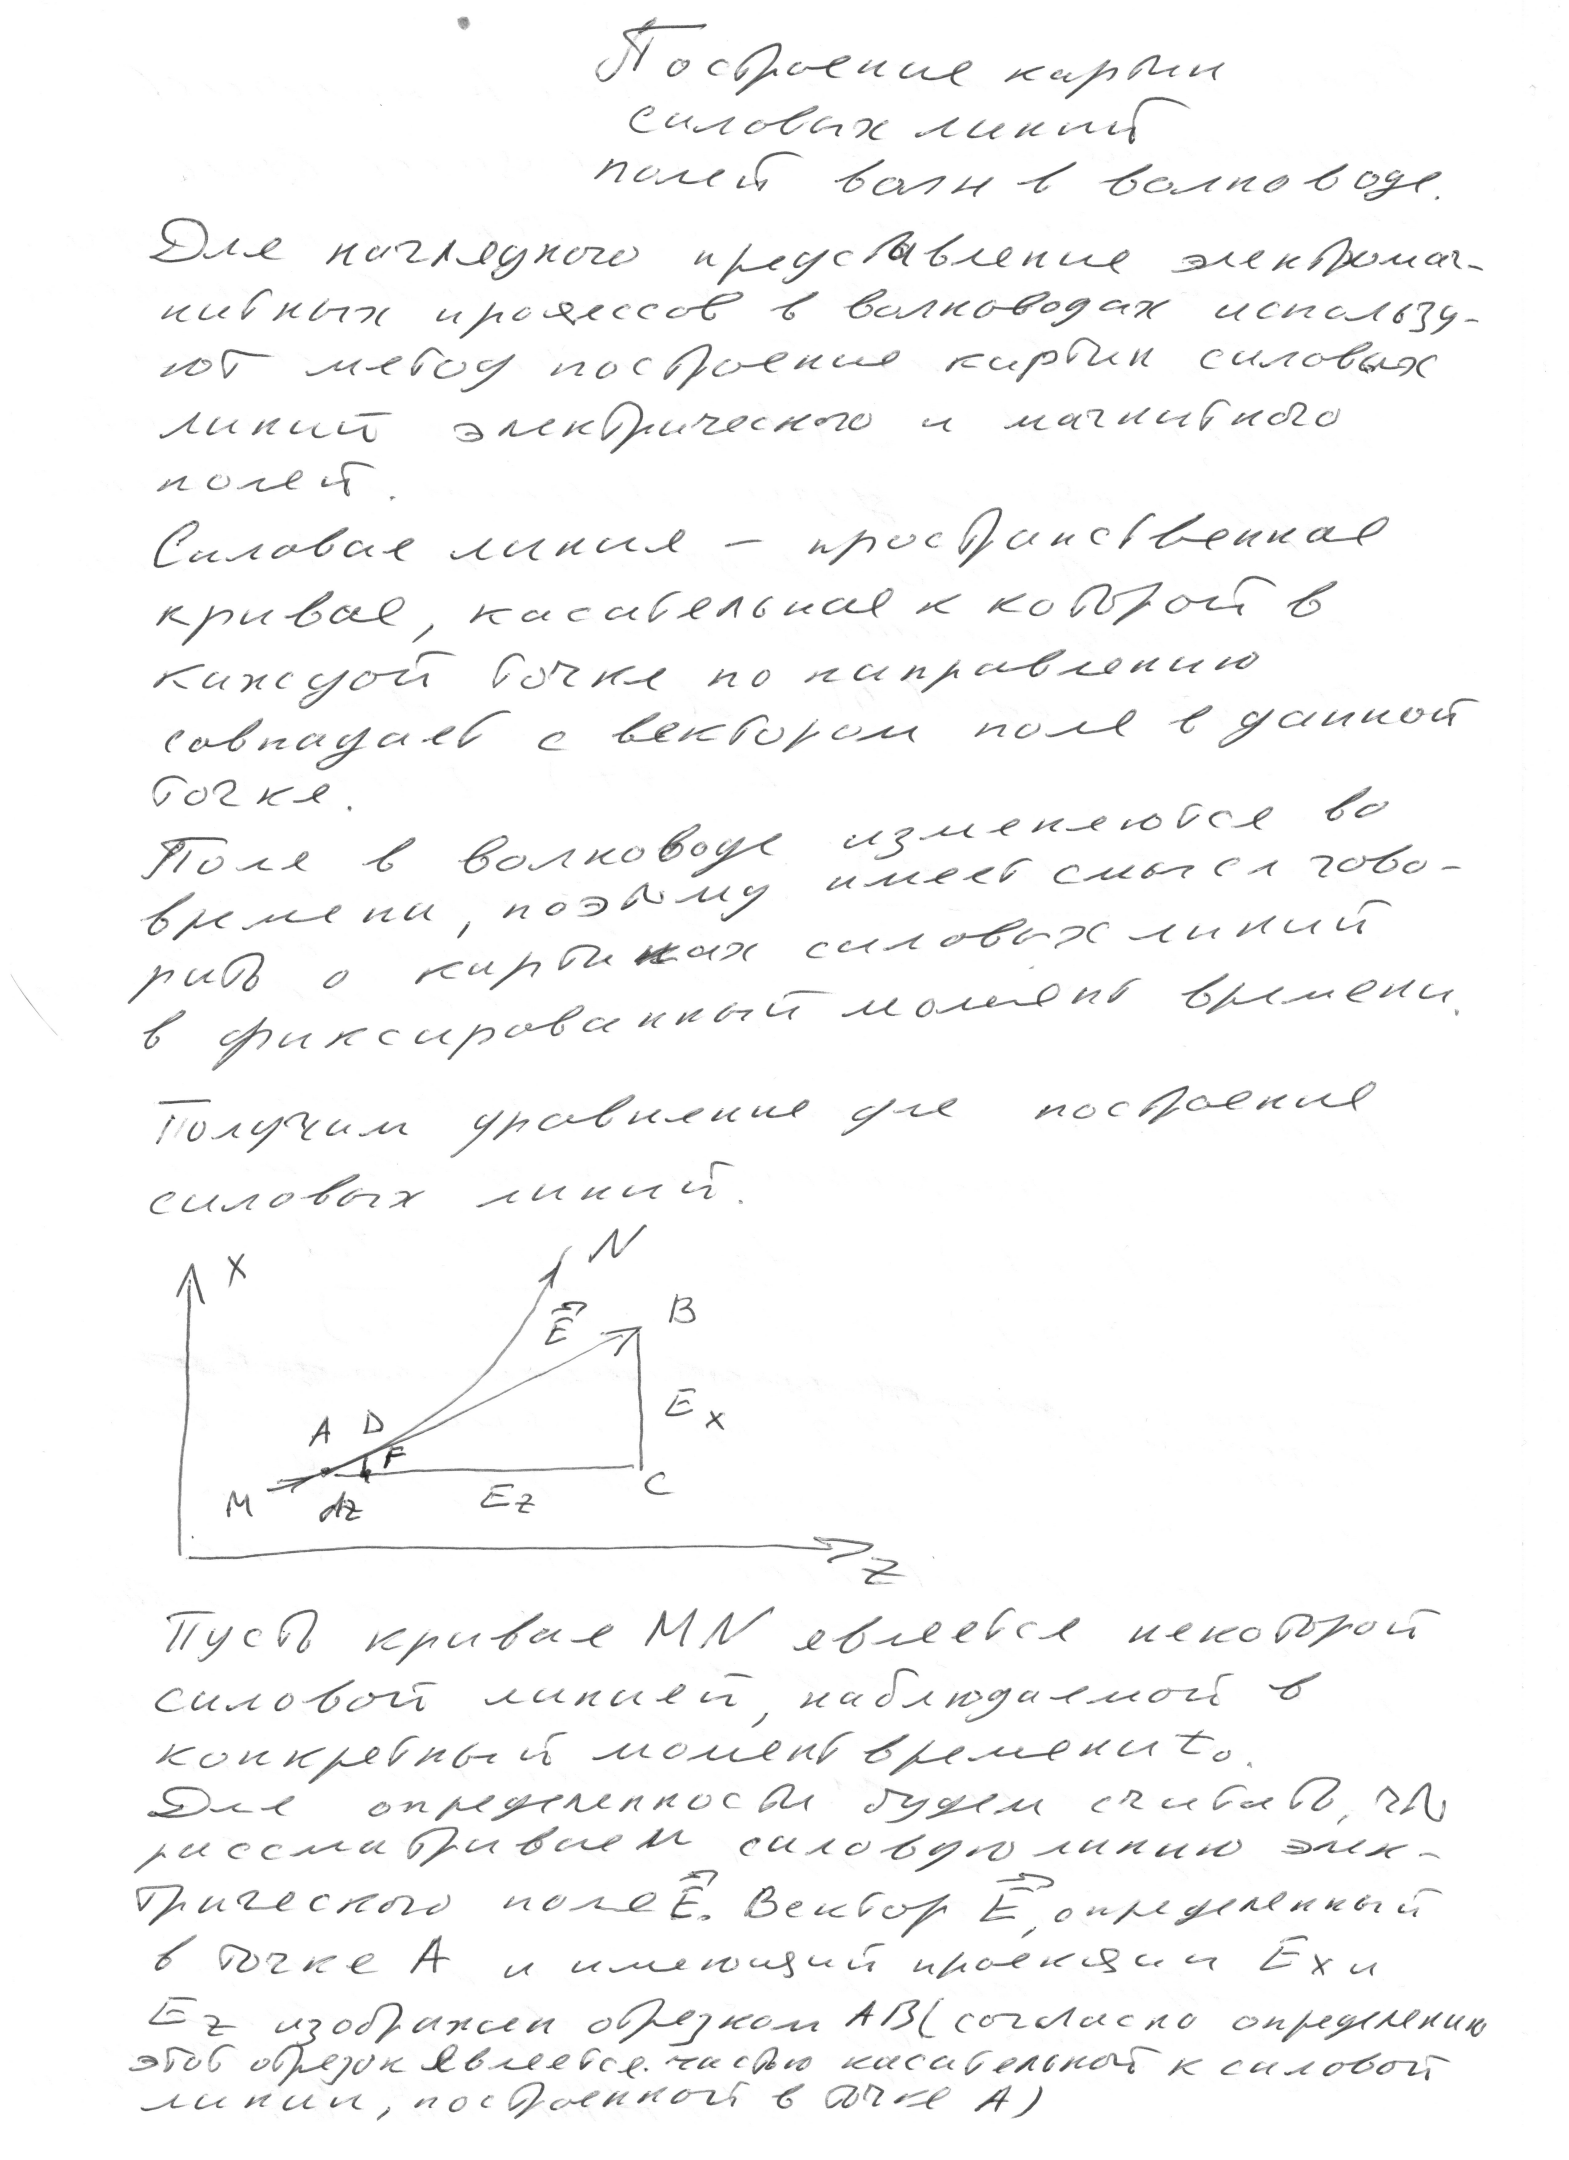 Построение картин
силовых линий
полей волн в волноводе.
Для наглядного представления электромаг-
нитных процессов в волноводах использу-
ют метод построения картин силовых
линий электрического и магнитного
полей.
Силовая линия – пространственная
кривая, касательная к которой в
каждой точке по направлению
совпадает с вектором поля в данной
точке.
Поля в волноводе изменяются во
времени, поэтому имеет смысл гово-
рить о картинах силовых линий
в фиксированный момент времени.
Получим уравнение для построения
силовых линий.
X N
E⃗ B
A D F Ex
M dz Ez C
Z
Пусть кривая MN является некоторой
силовой линией, наблюдаемой в
конкретный момент времени t₀.
Для определенности будем считать, что
рассматриваем силовую линию элек-
трического поля E⃗. Вектор E⃗, определенный
в точке A и имеющий проекции Ex и
Ez изображен отрезком AB (согласно определению
этот отрезок является частью касательной к силовой
линии, построенной в точке A)